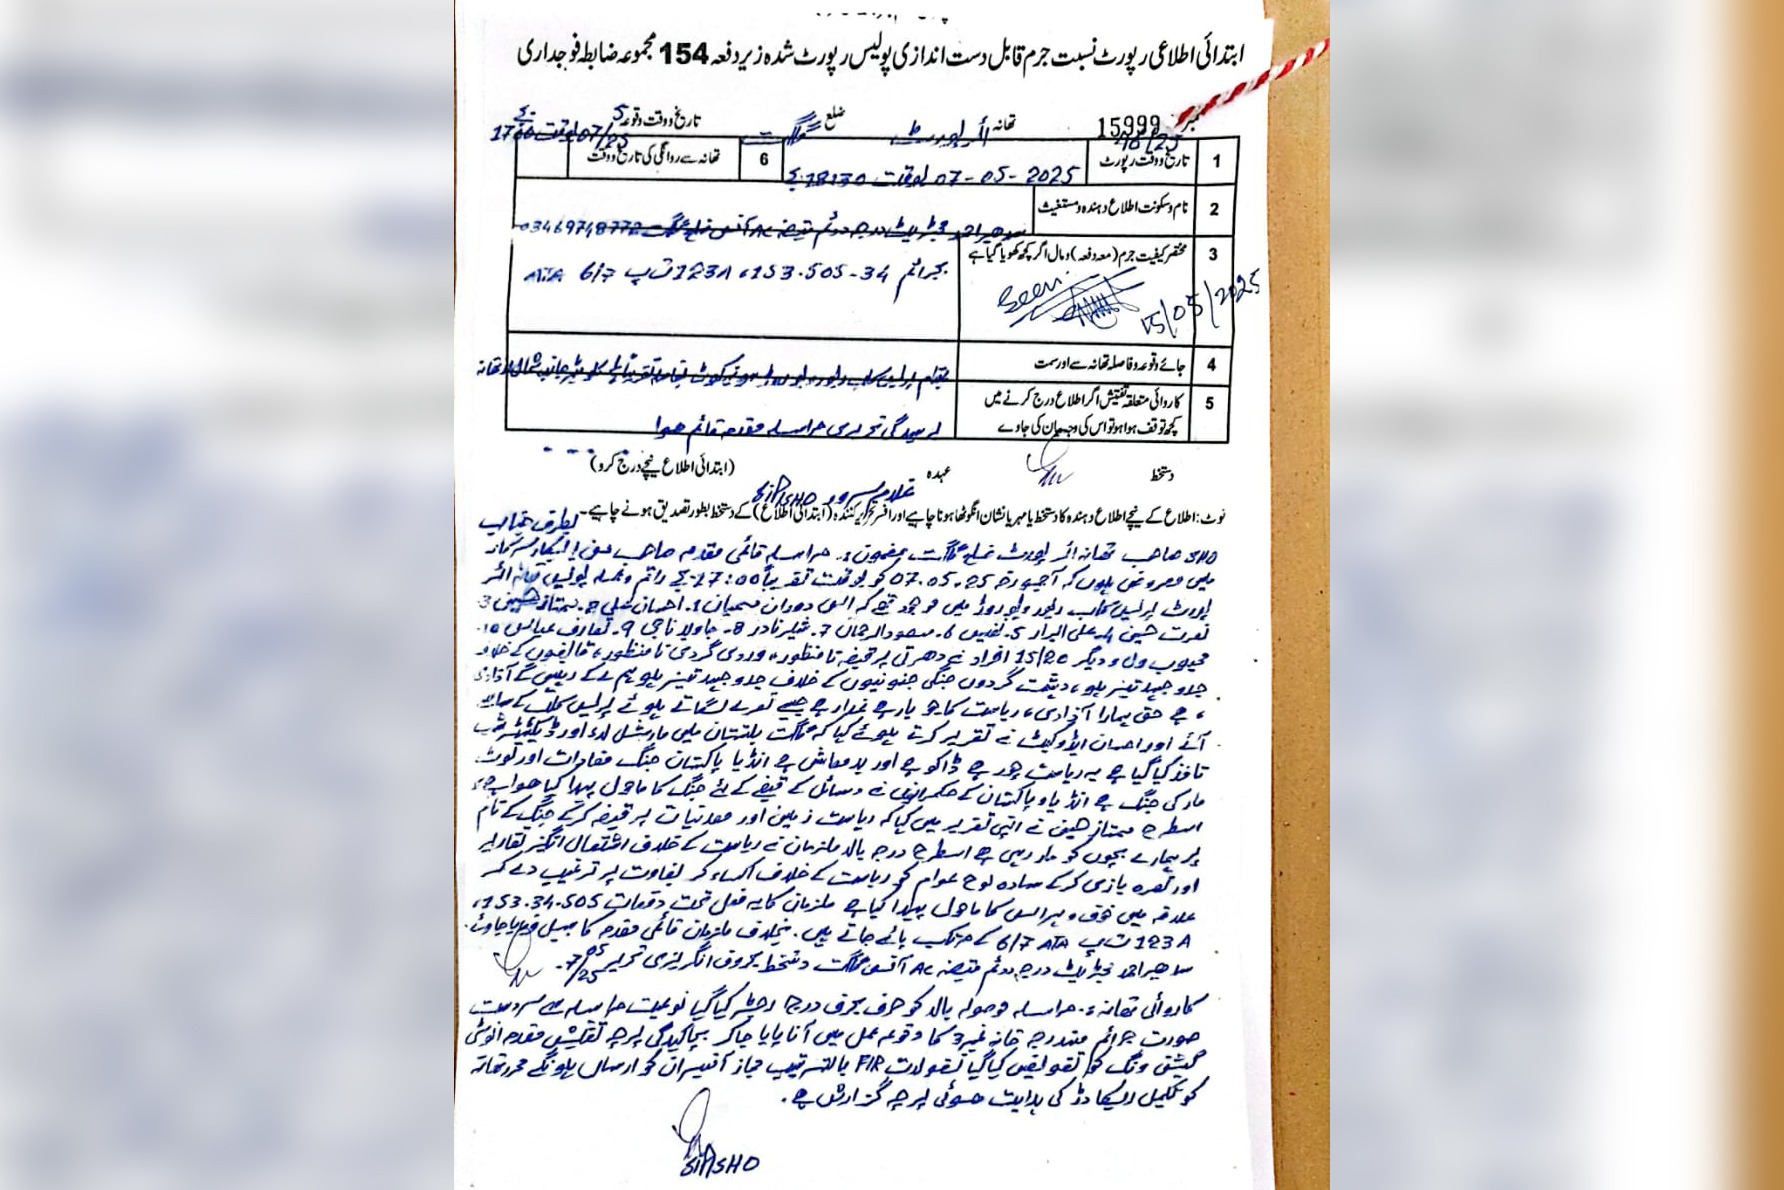 ابتدائی اطلاعی رپورٹ نسبت جرم قابل دست اندازی پولیس رپورٹ شدہ زیر دفعہ 154 مجموعہ ضابطہ فوجداری
نمبر 15999 تھانہ ائرپورٹ ضلع گلگت تاریخ و وقت وقوعہ 07/5/25 بوقت 1700 بجے
1 تاریخ و وقت رپورٹ 07-05-2025 بوقت 18:30 بجے 6 تھانہ سے روانگی کی تاریخ و وقت
2 نام و سکونت اطلاع دہندہ و مستغیث مجسٹریٹ درجہ دوئم متیعنہ AC آفس ضلع گلگت 03469748772
3 مختصر کیفیت جرم (معہ دفعہ) و مال اگر کچھ کھویا گیا ہے
بجرائم 34-505-153، 123A ت پ 6/7 ATA
Seen
15/05/2025
4 جائے وقوعہ و فاصلہ تھانہ سے اور سمت
5 کاروائی متعلقہ تفتیش اگر اطلاع درج کرنے میں
کچھ توقف ہوا ہو تو اس کی وجہ بیان کی جاوے برسیدگی تحریری مراسلہ مقدمہ قائم ہوا
دستخط عہدہ (ابتدائی اطلاع نیچے درج کرو)
غلام سرور SI/ASHO
نوٹ: اطلاع کے نیچے اطلاع دہندہ کا دستخط یا مہر یا نشان انگوٹھا ہونا چاہیے اور افسر تحریر کنندہ (ابتدائی اطلاع) کے دستخط بطور تصدیق ہونے چاہیے۔ بطرف جناب
SHO صاحب تھانہ ائرپورٹ ضلع گلگت مضمون: مراسلہ قائمی مقدمہ صاحب من!
میں معروض ہوں کہ آج مورخہ 07.05.25 کو بوقت تقریباً 17:00 بجے راقم و عملہ پولیس تھانہ ائر
پورٹ پریس کلب ریور ویو روڈ میں موجود تھے کہ اس دوران مسمیان 1۔ احسان علی 2۔ ممتاز حسین 3
نصرت حسین 4۔ علی ابرار 5۔ نفیس 6۔ مسعود الرحمان 7۔ شیر نادر 8۔ جاوید ناجی 9۔ تعارف عباس 10۔
محبوب ولی و دیگر 15/20 افراد نے دھرتی پر قبضہ نا منظور، وردی گردی نا منظور، قابضوں کے خلاف
جدوجہد تیز ہو، دہشت گردوں جنگی جنونیوں کے خلاف جدوجہد تیز ہو ہم لے کے رہیں گے آزادی
، ہے حق ہمارا آزادی، ریاست کا جو یار ہے غدار ہے جیسے نعرے لگاتے ہوئے پریس کلب کے سامنے
آئے اور احسان ایڈوکیٹ نے تقریر کرتے ہوئے کہا کہ گلگت بلتستان میں مارشل لاء اور ڈکٹیٹرشپ
نافذ کیا گیا ہے یہ ریاست چور ہے ڈاکو ہے اور بدمعاش ہے انڈیا پاکستان جنگ مفادات اور لوٹ
مار کی جنگ ہے انڈیا و پاکستان کے حکمرانوں نے وسائل کے قبضے کے لئے جنگ کا ماحول پیدا کیا ہوا ہے،
اسطرح ممتاز حسین نے اپنی تقریر میں کہا کہ ریاست زمین اور معدنیات پر قبضہ کر کے جنگ کے نام
پر ہمارے بچوں کو مار رہی ہے اسطرح درجہ بالا ملزمان نے ریاست کے خلاف اشتعال انگیز تقاریر
اور نعرہ بازی کر کے سادہ لوح عوام کو ریاست کے خلاف اکسا کر بغاوت پر ترغیب دے کر
علاقہ میں خوف و ہراس کا ماحول پیدا کیا ہے ملزمان کا یہ فعل تحت دفعات 153.34.505،
123A ت پ 6/7 ATA کے مرتکب پائے جاتے ہیں۔ بخلاف ملزمان قائمی مقدمہ کا سبیل فرمایا جاوئے۔
مجسٹریٹ درجہ دوئم متیعنہ AC آفس گلگت دستخط بحروف انگریزی تحریر 7/05/25۔
کاروائی تھانہ:۔ مراسلہ موصولہ بالا کو حرف بحرف درج رجسٹر کیا گیا نوعیت مراسلہ سے سردست
صورت جرائم مندرجہ خانہ نمبر 3 کا وقوعہ عمل میں آنا پایا جا کر بچاکیدگی پرچہ تفتیش مقدمہ انوسٹی
گیشن ونگ کو تفویض کیا گیا نقولات FIR بالترتیب مجاز آفیسران کو ارسال ہونگے محرر تھانہ
کو تکمیل ریکارڈ کی ہدایت ہوئی پرچہ گزارش ہے۔
SI/ASHO